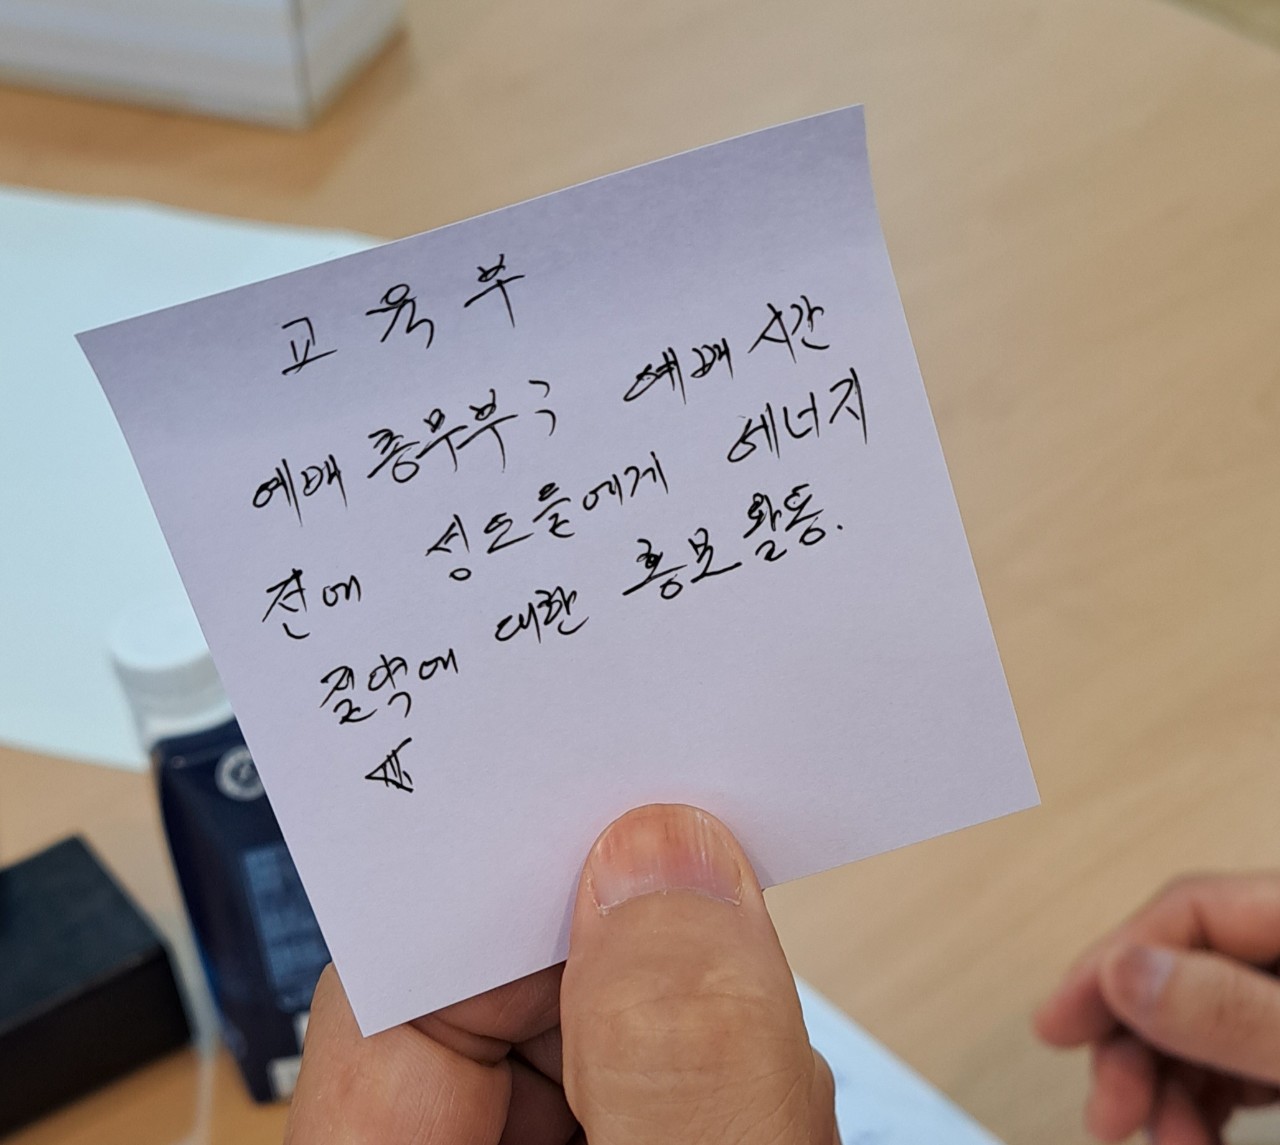 교육부
예배 총무부 ; 예배 시간
전에 성도들에게 에너지
절약에 대한 홍보 활동.